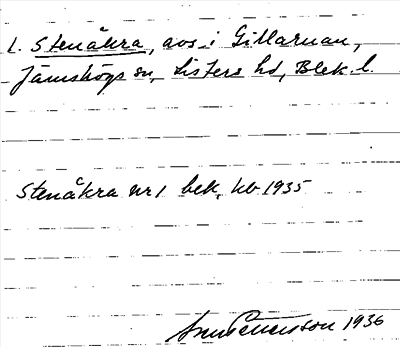 1. Stenåkra, avs. i Gillaruan,
Jämshögs sn, Listers hd, Blek. l.
Stenåkra nr 1 bek, kb 1935
1936